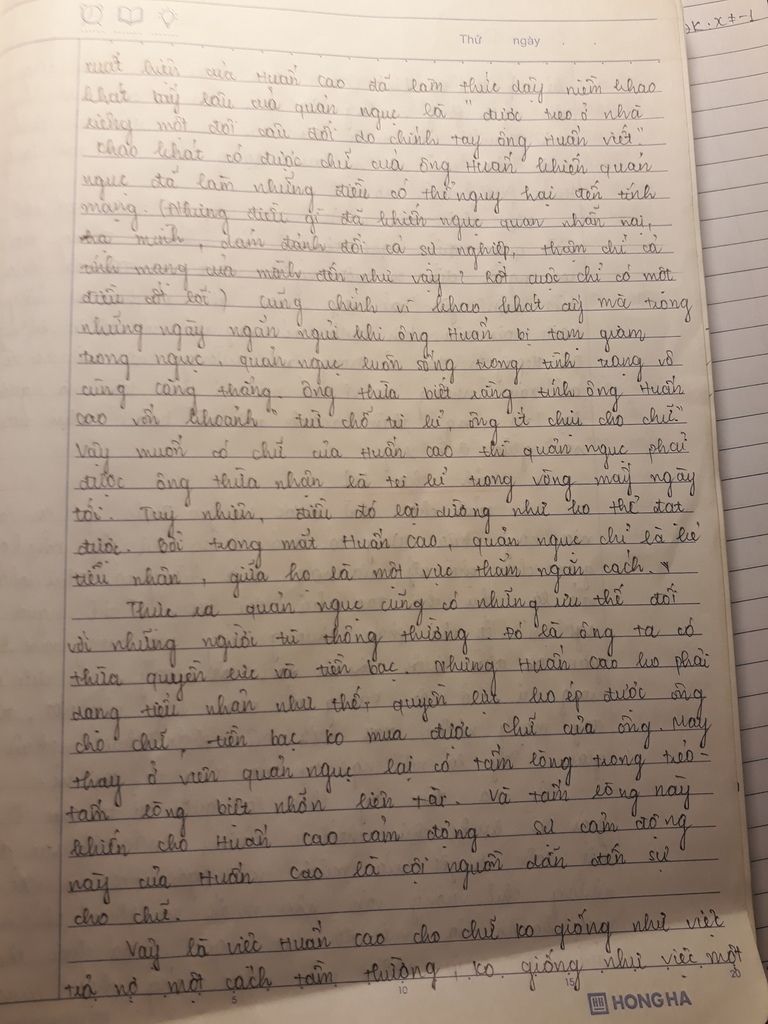 2k.x+-1
Thứ ngày . .
xuất hiện của Huấn Cao đã làm thức dậy niềm khao
khát bấy lâu của quản ngục là "được treo ở nhà
riêng một đôi câu đối do chính tay ông Huấn viết".
Khao khát có được chữ của ông Huấn khiến quản
ngục đã làm những điều có thể nguy hại đến tính
mạng. (Nhưng điều gì đã khiến ngục quan nhẫn nại,
hạ mình, dám đánh đổi cả sự nghiệp, thậm chí cả
tính mạng của mình đến như vậy? Rốt cuộc chỉ có một
điều cốt lõi) Cũng chính vì khao khát ấy mà trong
những ngày ngắn ngủi khi ông Huấn bị tạm giam
trong ngục, quản ngục luôn sống trong tình trạng vô
cùng căng thẳng. Ông thừa biết rằng tính ông Huấn
Cao vốn khoảnh "trừ chỗ tri kỉ, ông ít chịu cho chữ."
Vậy muốn có chữ của Huấn Cao thì quản ngục phải
được ông thừa nhận là tri kỉ trong vòng mấy ngày
tới. Tuy nhiên, điều đó lại dường như ko thể đạt
được. Bởi trong mắt Huấn Cao, quản ngục chỉ là kẻ
tiểu nhân, giữa họ là một vực thẳm ngăn cách.
Thực ra quản ngục cũng có những ưu thế đối
với những người tù thông thường. Đó là ông ta có
thừa quyền lực và tiền bạc. Nhưng Huấn Cao ko phải
dạng tiểu nhân như thế, quyền lực ko ép được ông
cho chữ, tiền bạc ko mua được chữ của ông. May
thay ở viên quản ngục lại có tấm lòng trong trẻo -
tấm lòng biết nhỡn liên tài. Và tấm lòng này
khiến cho Huấn Cao cảm động. Sự cảm động
này của Huấn Cao là cội nguồn dẫn đến sự
cho chữ.
Vậy là việc Huấn Cao cho chữ ko giống như việc
trả nợ một cách tầm thường, ko giống như việc một
5 10 15 20
HONG HA